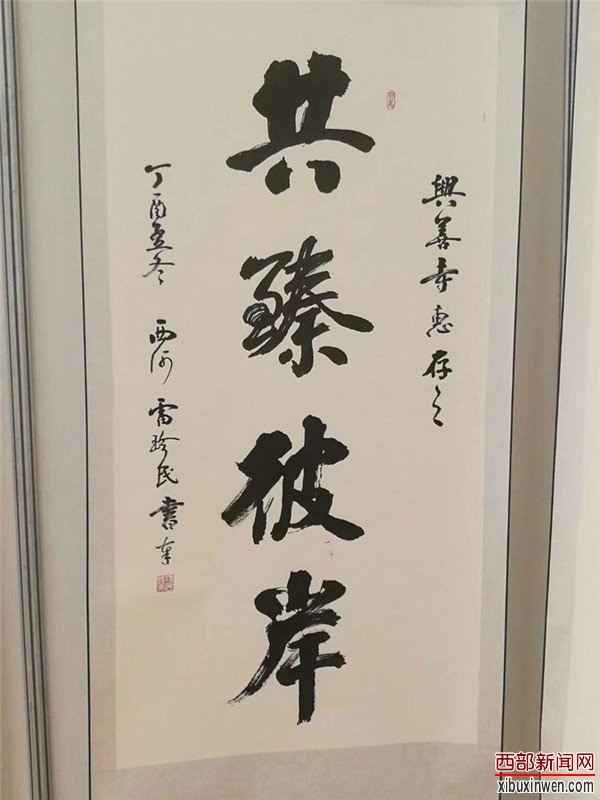 興善寺惠存之
共臻彼岸
丁酉孟冬 西河 雷珍民書奉
西部新闻网
xibuxinwen.com